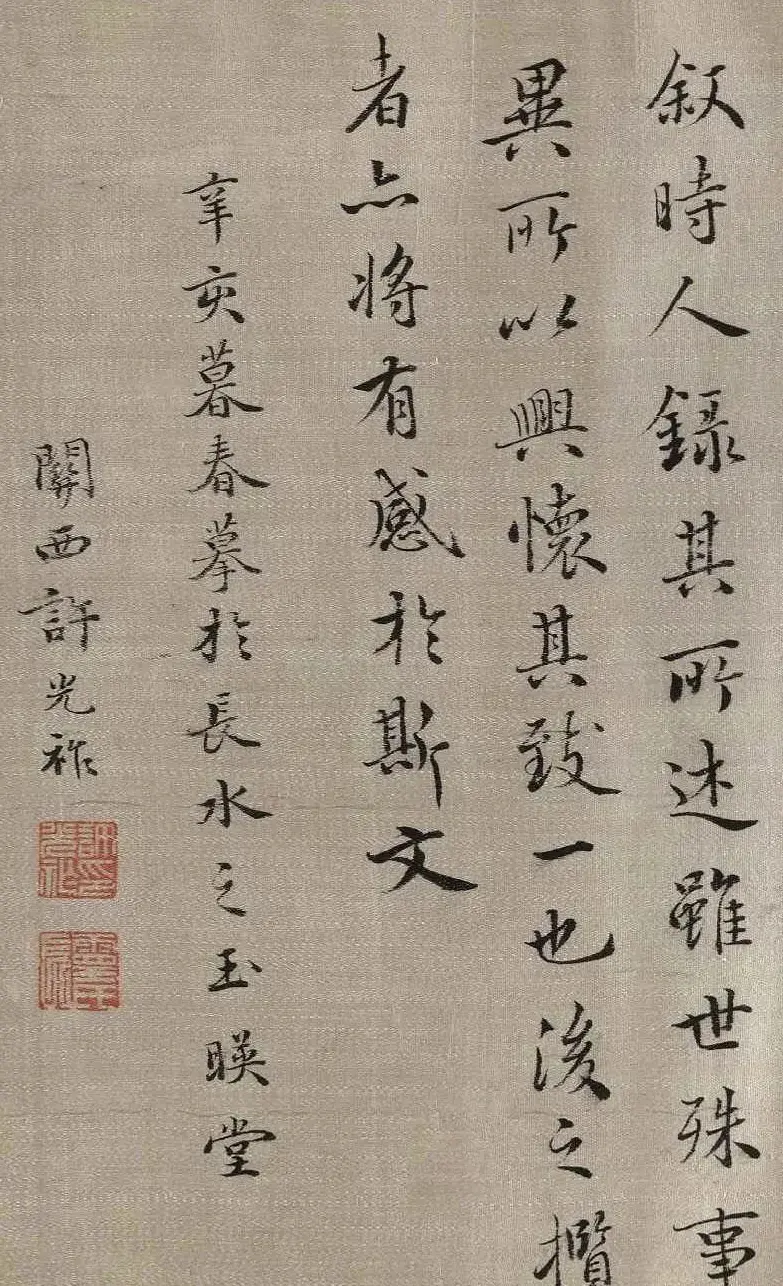 叙時人録其所述雖世殊事
異所以興懷其致一也後之攬
者亦將有感於斯文
辛亥暮春摹於長水之玉暎堂
關西許光祚